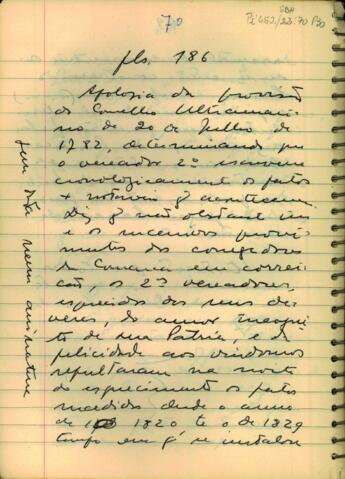 70
SBH
Pi 452/22:70 P30
fls. 186
Apologia da provisão
do Conselho Ultramari
no de 20 de Julho de
1782, determinando que
o vereador 2º escrevesse
cronologicamente os fatos
+ notáveis q acontecessem.
Diz q não obstante isso
e os sucessivos provi
mentos dos corregedores
da Comarca em correi
ção, os 2ºs vereadores,
esquecidos dos seus de
veres, do amor
de sua Pátria, e da
felicidade aos vindouros
sepultaram na noite
do esquecimento os fatos
sucedidos desde o anno
de 1820 te o de 1829
tempo em q se installou
sem data nem assinatura